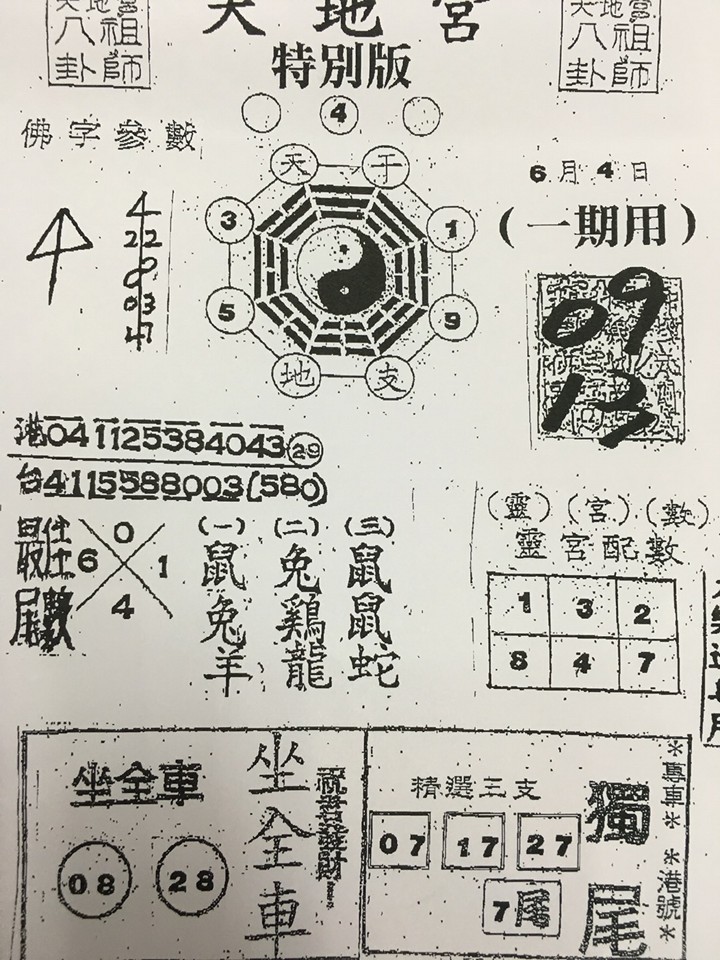 天地宮
天地宮祖師
八卦
天地宮祖師
八卦
特別版
佛字參數
4
天 干
3 1
5 9
地 支
4
22
03
47
6月4日
(一期用)
09
13
港04112538404329
台4115588003(580)
最佳
尾數
0
6 1
4
(一) (二) (三)
鼠 兔 鼠
兔 鷄 鼠
羊 龍 蛇
(靈) (宮) (數)
靈宮配數
1 3 2
8 4 7
坐全車
08 28
坐全車
祝君發財
精選三支
07 17 27
7尾
獨尾
*專車* *港號*